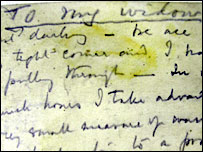 To My Widow
darling — we are
tight corner and I ha
pulling through — In
hours I take advan
small measure of war
to a